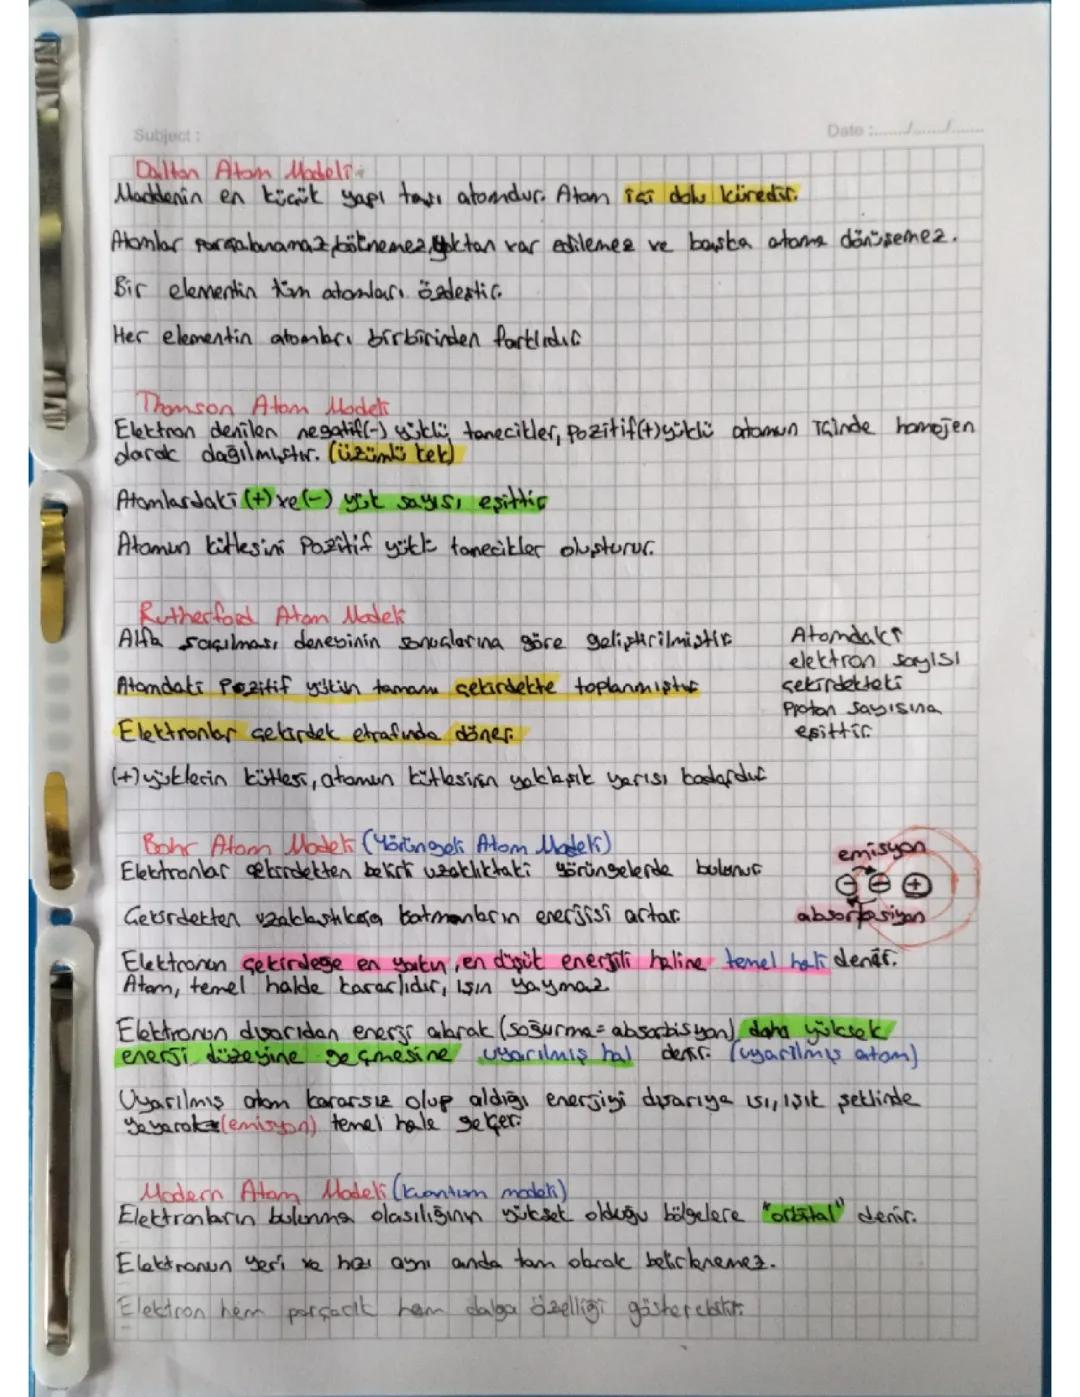 Subject :
Date :......../......../........
Dalton Atom Modeli
Maddenin en küçük yapı taşı atomdur. Atom içi dolu küredir.
Atomlar parçalanamaz, bölünemez, yoktan var edilemez ve başka atoma dönüşemez.
Bir elementin tüm atomları özdeştir.
Her elementin atomları birbirinden farklıdır
Thomson Atom Modeli
Elektron denilen negatif(-) yüklü tanecikler, pozitif(+) yüklü atomun içinde homojen
olarak dağılmıştır. (üzümlü kek)
Atomlardaki (+) ve (-) yük sayısı eşittir
Atomun kütlesini Pozitif yüklü tanecikler oluşturur.
Rutherford Atom Modeli
Alfa saçılması deneyinin sonuçlarına göre geliştirilmiştir
Atomdaki Pozitif yükün tamamı çekirdekte toplanmıştır
Elektronlar çekirdek etrafında döner.
(+) yüklerin kütlesi, atomun kütlesinin yaklaşık yarısı kadardır
Atomdaki
elektron sayısı
çekirdekteki
Proton sayısına
eşittir
Bohr Atom Modeli (Yörüngeli Atom Modeli)
Elektronlar çekirdekten belirli uzaklıktaki yörüngelerde bulunur
Çekirdekten uzaklaştıkça katmanların enerjisi artar.
emisyon
- - +
absorbasiyon
Elektronun çekirdeğe en yakın, en düşük enerjili haline temel hali denir.
Atom, temel halde kararlıdır, ışın yaymaz
Elektronun dışarıdan enerji alarak (soğurma=absorbisyon) daha yüksek
enerji düzeyine geçmesine uyarılmış hal denir. (uyarılmış atom)
Uyarılmış atom kararsız olup aldığı enerjiyi dışarıya ısı, ışık şeklinde
yayarak (emisyon) temel hale geçer.
Modern Atom Modeli (kuantum modeli)
Elektronların bulunma olasılığının yüksek olduğu bölgelere "orbital" denir.
Elektronun yeri ve hızı aynı anda tam olarak belirlenemez.
Elektron hem parçacık hem dalga özelliği gösterebilir.